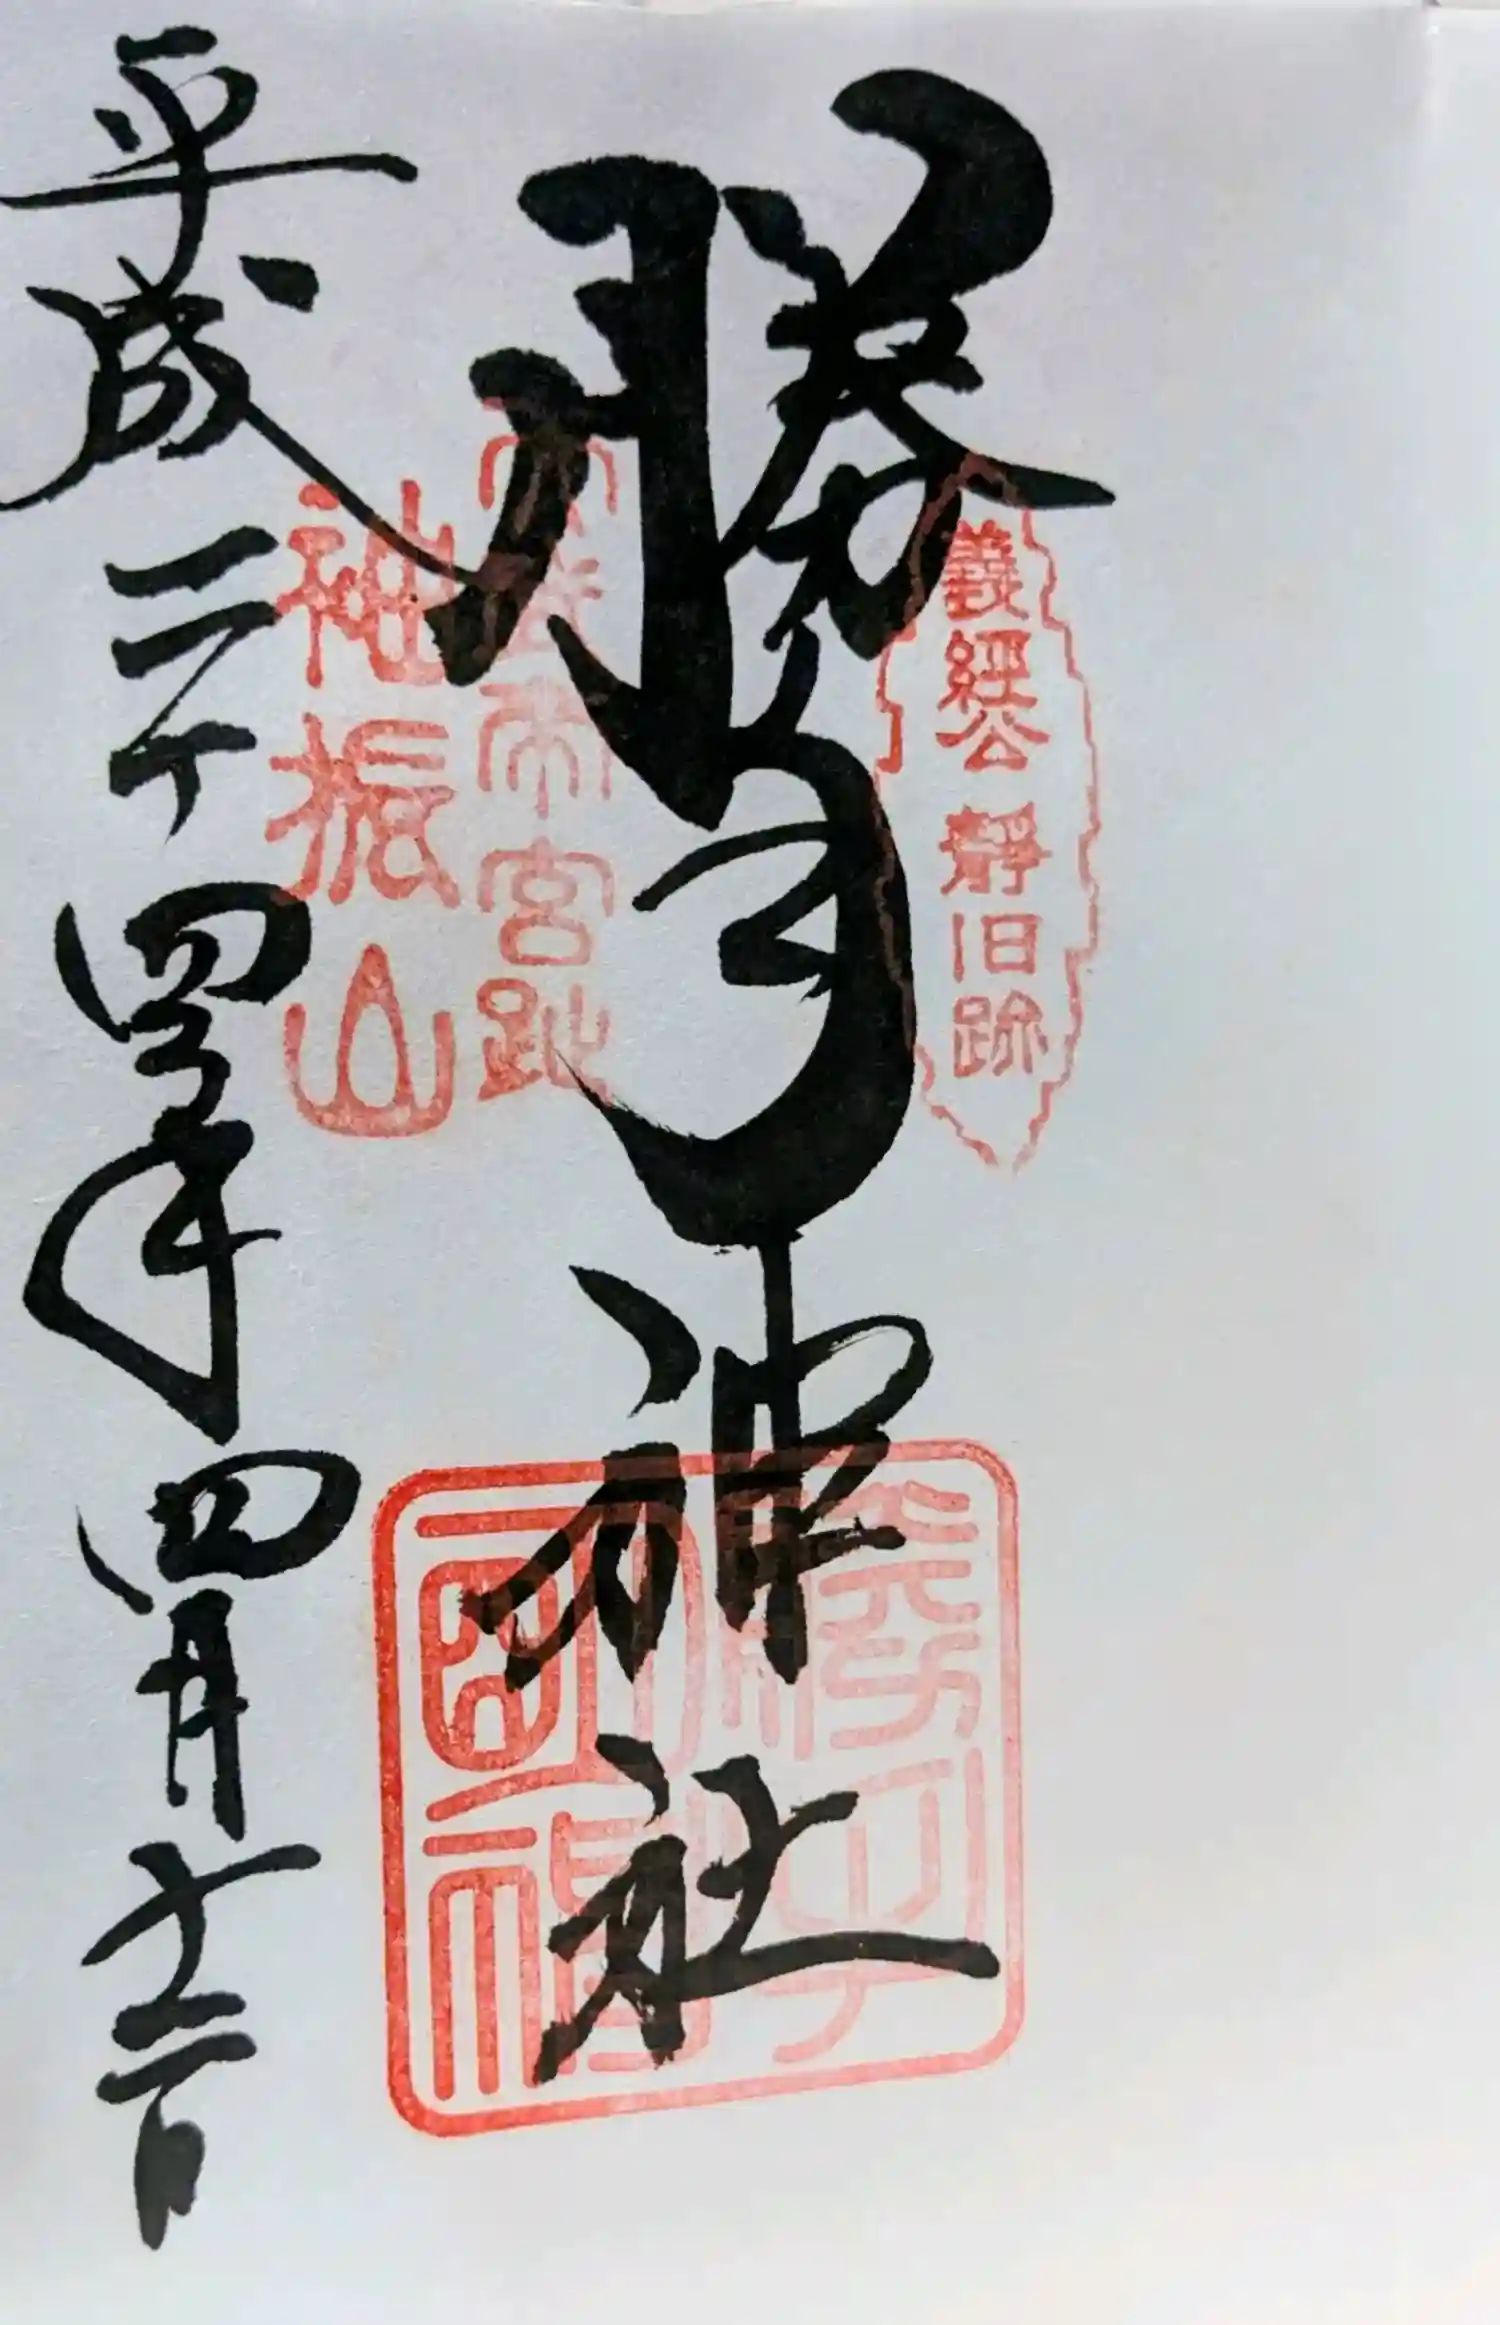 義經公 靜旧跡
勝手神社
天武天皇宮跡
袖振山
勝手明神
平成二十四年四月十二日